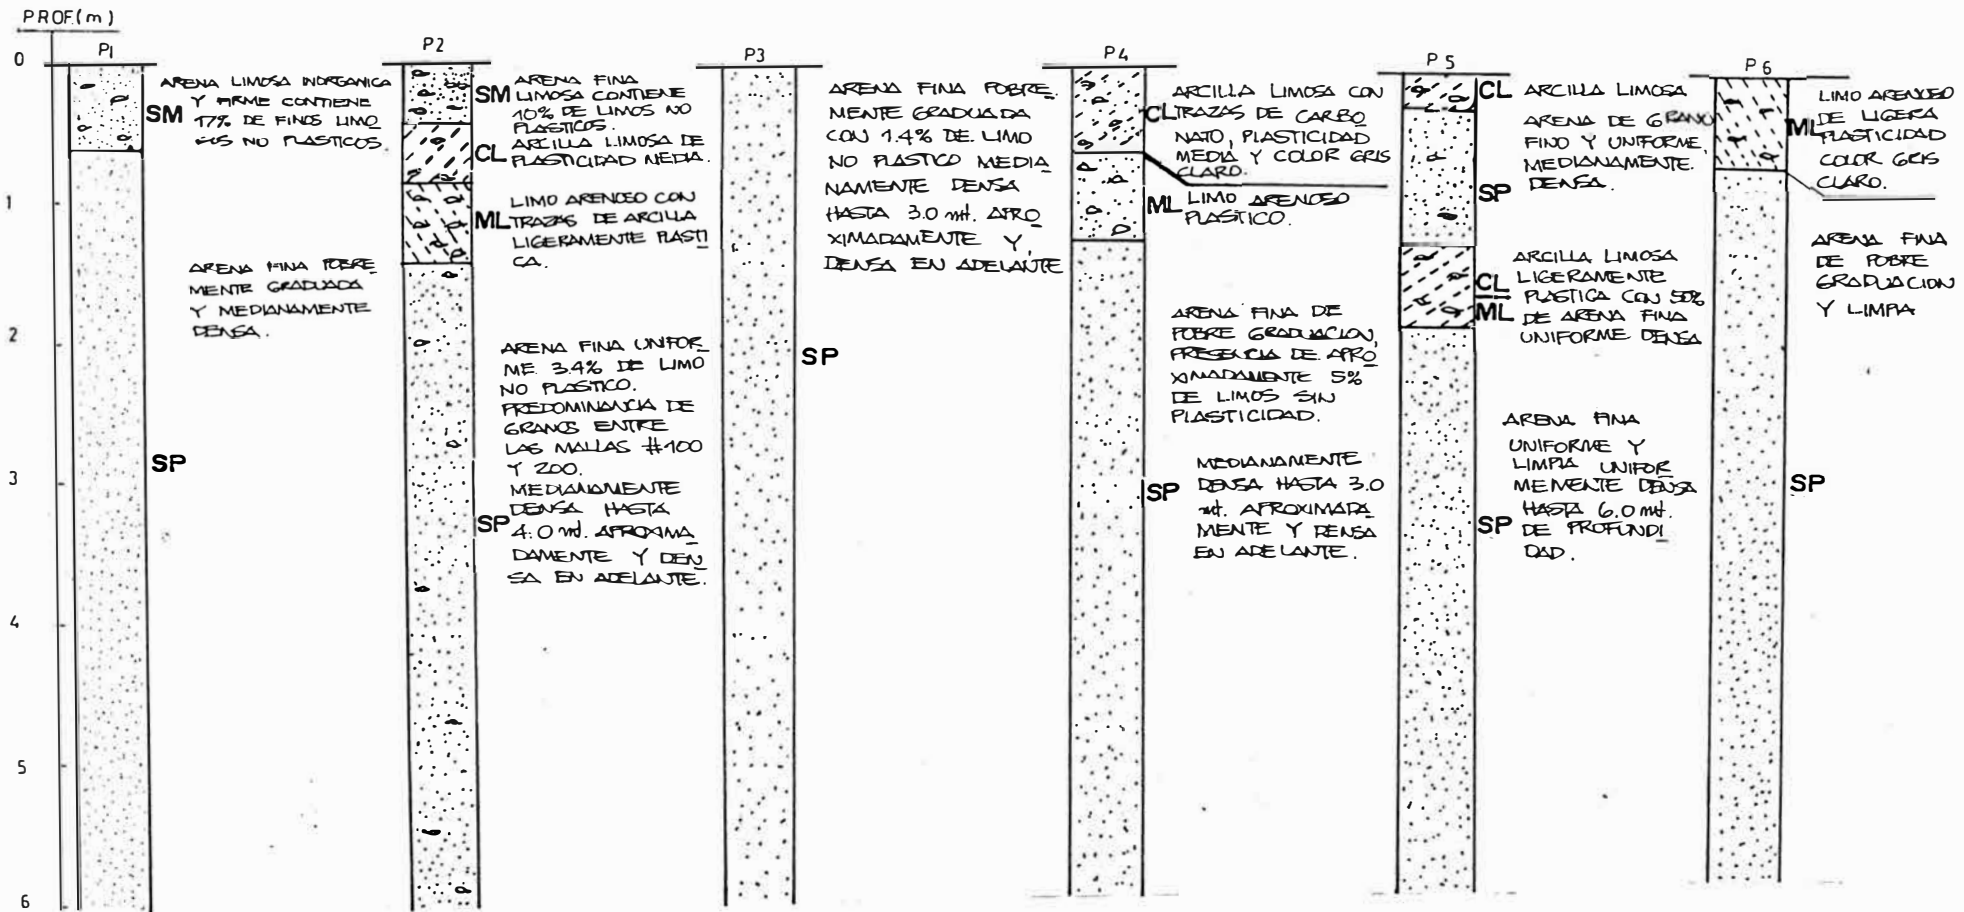 PROF.(m)
0
1
2
3
4
5
6
P1
SM
ARENA LIMOSA INORGANICA
Y FIRME CONTIENE
17% DE FINOS LIMO
SOS NO PLASTICOS.
ARENA FINA POBRE
MENTE GRADUADA
Y MEDIANAMENTE
DENSA.
SP
P2
SM
ARENA FINA
LIMOSA CONTIENE
10% DE LIMOS NO
PLASTICOS.
CL
ARCILLA LIMOSA DE
PLASTICIDAD MEDIA.
ML
LIMO ARENOSO CON
TRAZAS DE ARCILLA
LIGERAMENTE PLASTI
CA.
ARENA FINA UNIFOR
ME 3.4% DE LIMO
NO PLASTICO.
PREDOMINANCIA DE
GRANOS ENTRE
LAS MALLAS #100
Y 200.
MEDIANAMENTE
DENSA HASTA
SP
4.0 mt. APROXIMA
DAMENTE Y DEN
SA EN ADELANTE.
P3
ARENA FINA POBRE
MENTE GRADUADA
CON 1.4% DE LIMO
NO PLASTICO MEDIA
NAMENTE DENSA
HASTA 3.0 mt. APRO
XIMADAMENTE Y
DENSA EN ADELANTE
SP
P4
CL
ARCILLA LIMOSA CON
TRAZAS DE CARBO
NATO, PLASTICIDAD
MEDIA Y COLOR GRIS
CLARO.
ML
LIMO ARENOSO
PLASTICO.
ARENA FINA DE
POBRE GRADUACION,
PRESENCIA DE APRO
XIMADAMENTE 5%
DE LIMOS SIN
PLASTICIDAD.
MEDIANAMENTE
SP
DENSA HASTA 3.0
mt. APROXIMADA
MENTE Y DENSA
EN ADELANTE.
P5
CL
ARCILLA LIMOSA
ARENA DE GRANO
FINO Y UNIFORME,
MEDIANAMENTE
DENSA.
SP
ARCILLA LIMOSA
CL
ML
LIGERAMENTE
PLASTICA CON 50%
DE ARENA FINA
UNIFORME DENSA
ARENA FINA
UNIFORME Y
LIMPIA UNIFOR
MEMENTE DENSA
SP
HASTA 6.0 mt.
DE PROFUNDI
DAD.
P6
ML
LIMO ARENOSO
DE LIGERA
PLASTICIDAD
COLOR GRIS
CLARO.
ARENA FINA
DE POBRE
GRADUACION
Y LIMPIA
SP